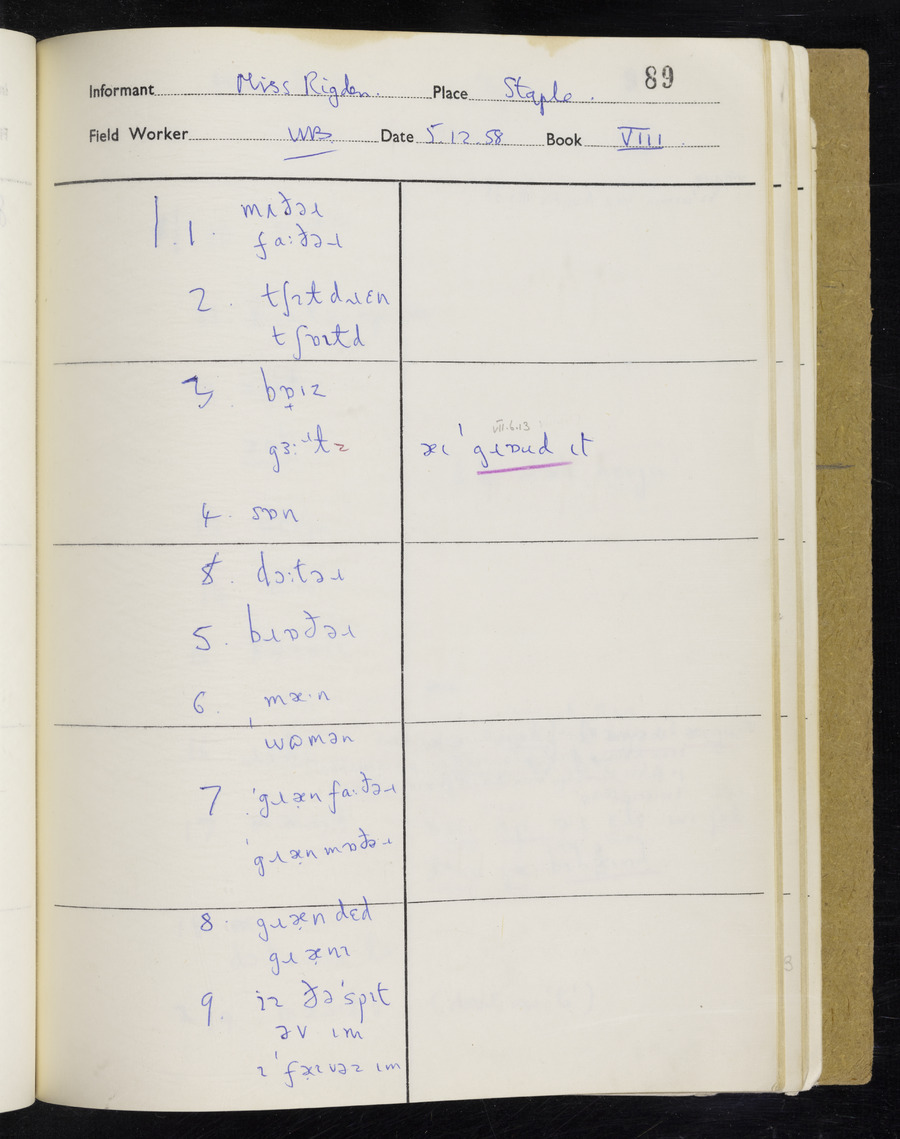 89
Informant Miss Rigden. Place Staple.
Field Worker WB. Date 5.12.58 Book VIII
1.1. mʌðəɹ
fa:ðəɹ
2. tʃɪtdɹɛn
tʃɒɪtd
3 bɒ̟ɪz
gɜ:ɹtz
VII.6.13
æɪ 'gɹɒud ɪt
4. sɒn
8. dɔ:təɹ
5. bɹɒðəɹ
6. mæ·n
wɷmən
7 'gɹæ̣nfa:ðəɹ
'gɹæ̣nmɒðəɹ
8. gɹæ̣ndɛd
gɹæ̣nɪ
9. iz ðə'spɪt
əv ɪm
ɪ'fæ̣ɪvəz ɪm